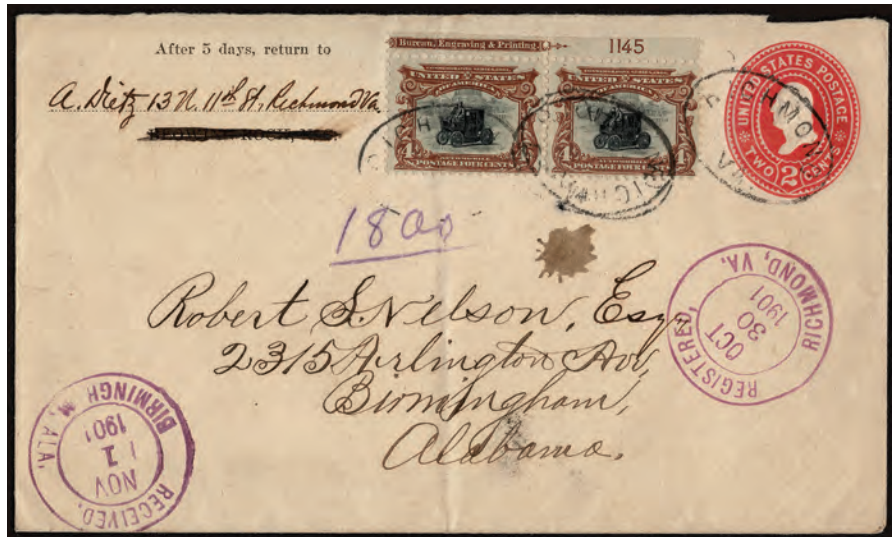 After 5 days, return to
A. Dietz 13 N. 11th St, Richmond Va
Bureau, Engraving & Printing.
1145
UNITED STATES
OF AMERICA
4 4
AUTOMOBILE
POSTAGE FOUR CENTS
UNITED STATES
OF AMERICA
4 4
AUTOMOBILE
POSTAGE FOUR CENTS
UNITED STATES POSTAGE
TWO 2 CENTS
RICHMOND
VA
1800
Robert S. Nelson, Esq,
2315 Arlington Ave,
Birmingham,
Alabama.
REGISTERED,
OCT
30
1901
RICHMOND, VA.
RECEIVED,
NOV
1
1901
BIRMINGH M, ALA.